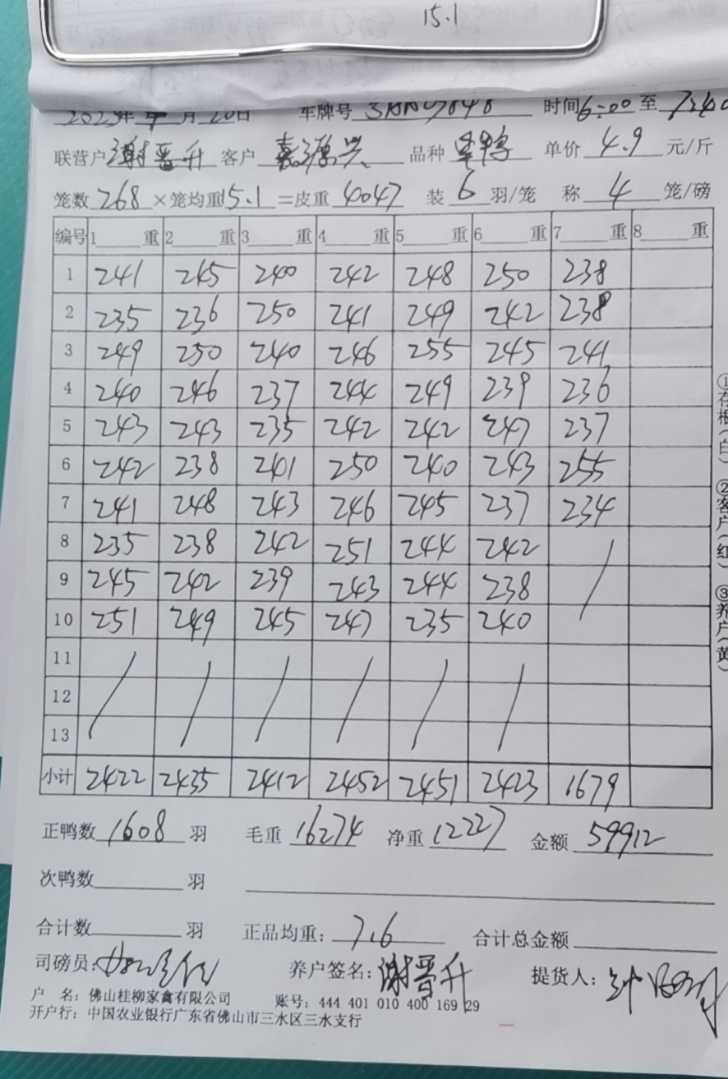 15.1
车牌号 时间 6:00 至
联营户 谢晋升 客户 嘉源兴 品种 单价 4.9 元/斤
笼数 268 ×笼均重 15.1 =皮重 4047 装 6 羽/笼 称 4 笼/磅
编号 1 重 2 重 3 重 4 重 5 重 6 重 7 重 8 重
1 241 245 240 242 248 250 238
2 235 236 250 241 249 242 238
3 249 250 240 246 255 245 241
4 240 246 237 244 249 239 236
5 243 243 235 242 242 247 237
6 242 238 241 250 240 243 255
7 241 248 243 246 245 237 234
8 235 238 242 251 244 242 /
9 245 242 239 243 244 238
10 251 249 245 247 235 240
11 / / / / / /
12
13
小计 2422 2435 2412 2452 2451 2423 1679
正鸭数 1608 羽 毛重 16274 净重 12227 金额 59912
次鸭数 羽
合计数 羽 正品均重: 7.6 合计总金额
司磅员: 养户签名: 谢晋升 提货人:
户 名: 佛山桂柳家禽有限公司 账号: 444 401 010 400 169 29
开户行: 中国农业银行广东省佛山市三水区三水支行
①存根(白) ②客户(红) ③养户(黄)